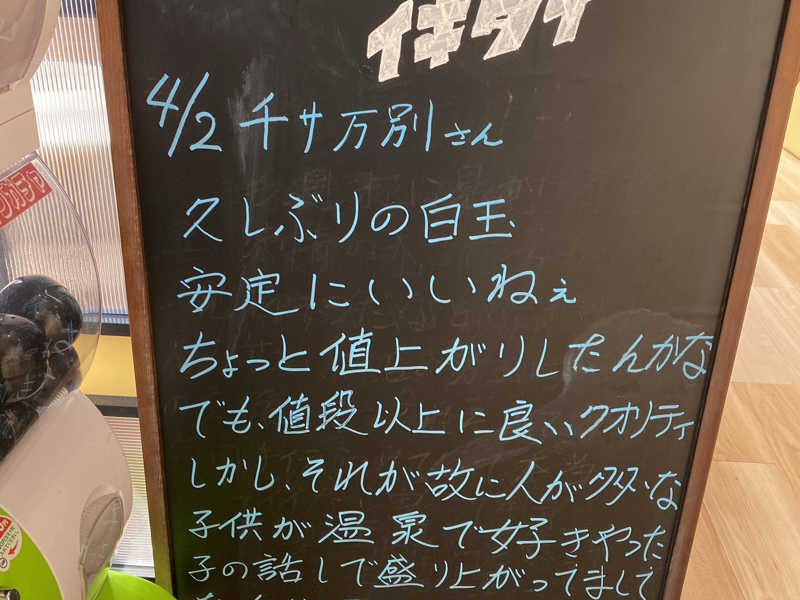 イキタイ
4/2 千サ万別さん
久しぶりの白玉
安定にいいねぇ
ちょっと値上がりしたんかな
でも、値段以上に良いクオリティ
しかし、それが故に人が多いな
子供が温泉で女子きやった
子の話しで盛り上がってまして
ガチャ